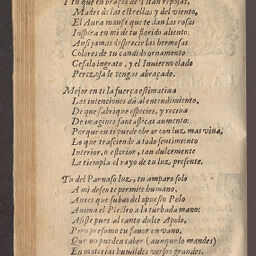 I tu que en braços de Titan reposas,
Madre de las estrellas y del viento,
El Aura mansa que te dan las rosas
Inspira en mi de tu florido aliento:
Ansi jamas desprecie las hermosas
Colores de tu candido ornamento
Cefalo ingrato, y el Inuierno elado
Perezosa le tengas abraçado.
Mejor en ti la fuerça estimatiua
Las intenciones dà al entendimiento,
De que fabrique especies, y reciua
De imagines fantasticas aumento:
Porque en ti puede obrar con luz, mas viua,
Lo que trasciende a todo sentimiento
Interior, o esterior, tan dulcemente
Le templa el rayo de tu luz, presente.
Tu del Parnaso luz, tu amparo solo
A mi deseo te permite humano,
Antes que subas del opuesto Polo
Anima el Plectro a la turbada mano:
Assiste pues al canto dulce Apolo,
Pero presumo tu fauor en vano,
Que no pueden caber (aunque lo mandes)
En materias humildes versos grandes.